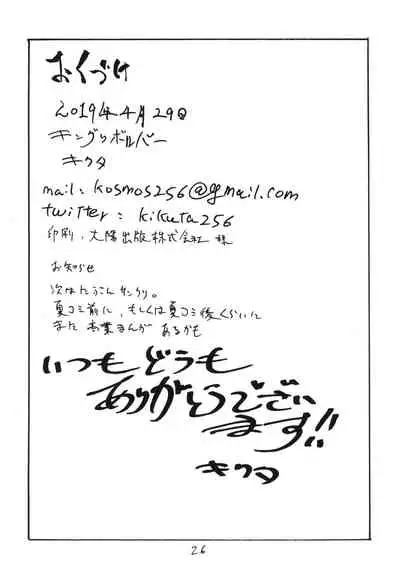 おくづけ
2019年4月29日
キングリボルバー
キクタ
mail: kosmos256@gmail.com
twitter: kikuta256
印刷:大陽出版株式会社 様
お知らせ
次は サンクリ。
夏コミ前に、もしくは夏コミ後くらいに
また 商業まんが あるかも
いつもどうも
ありがとうでござい
ます!!
キクタ
26